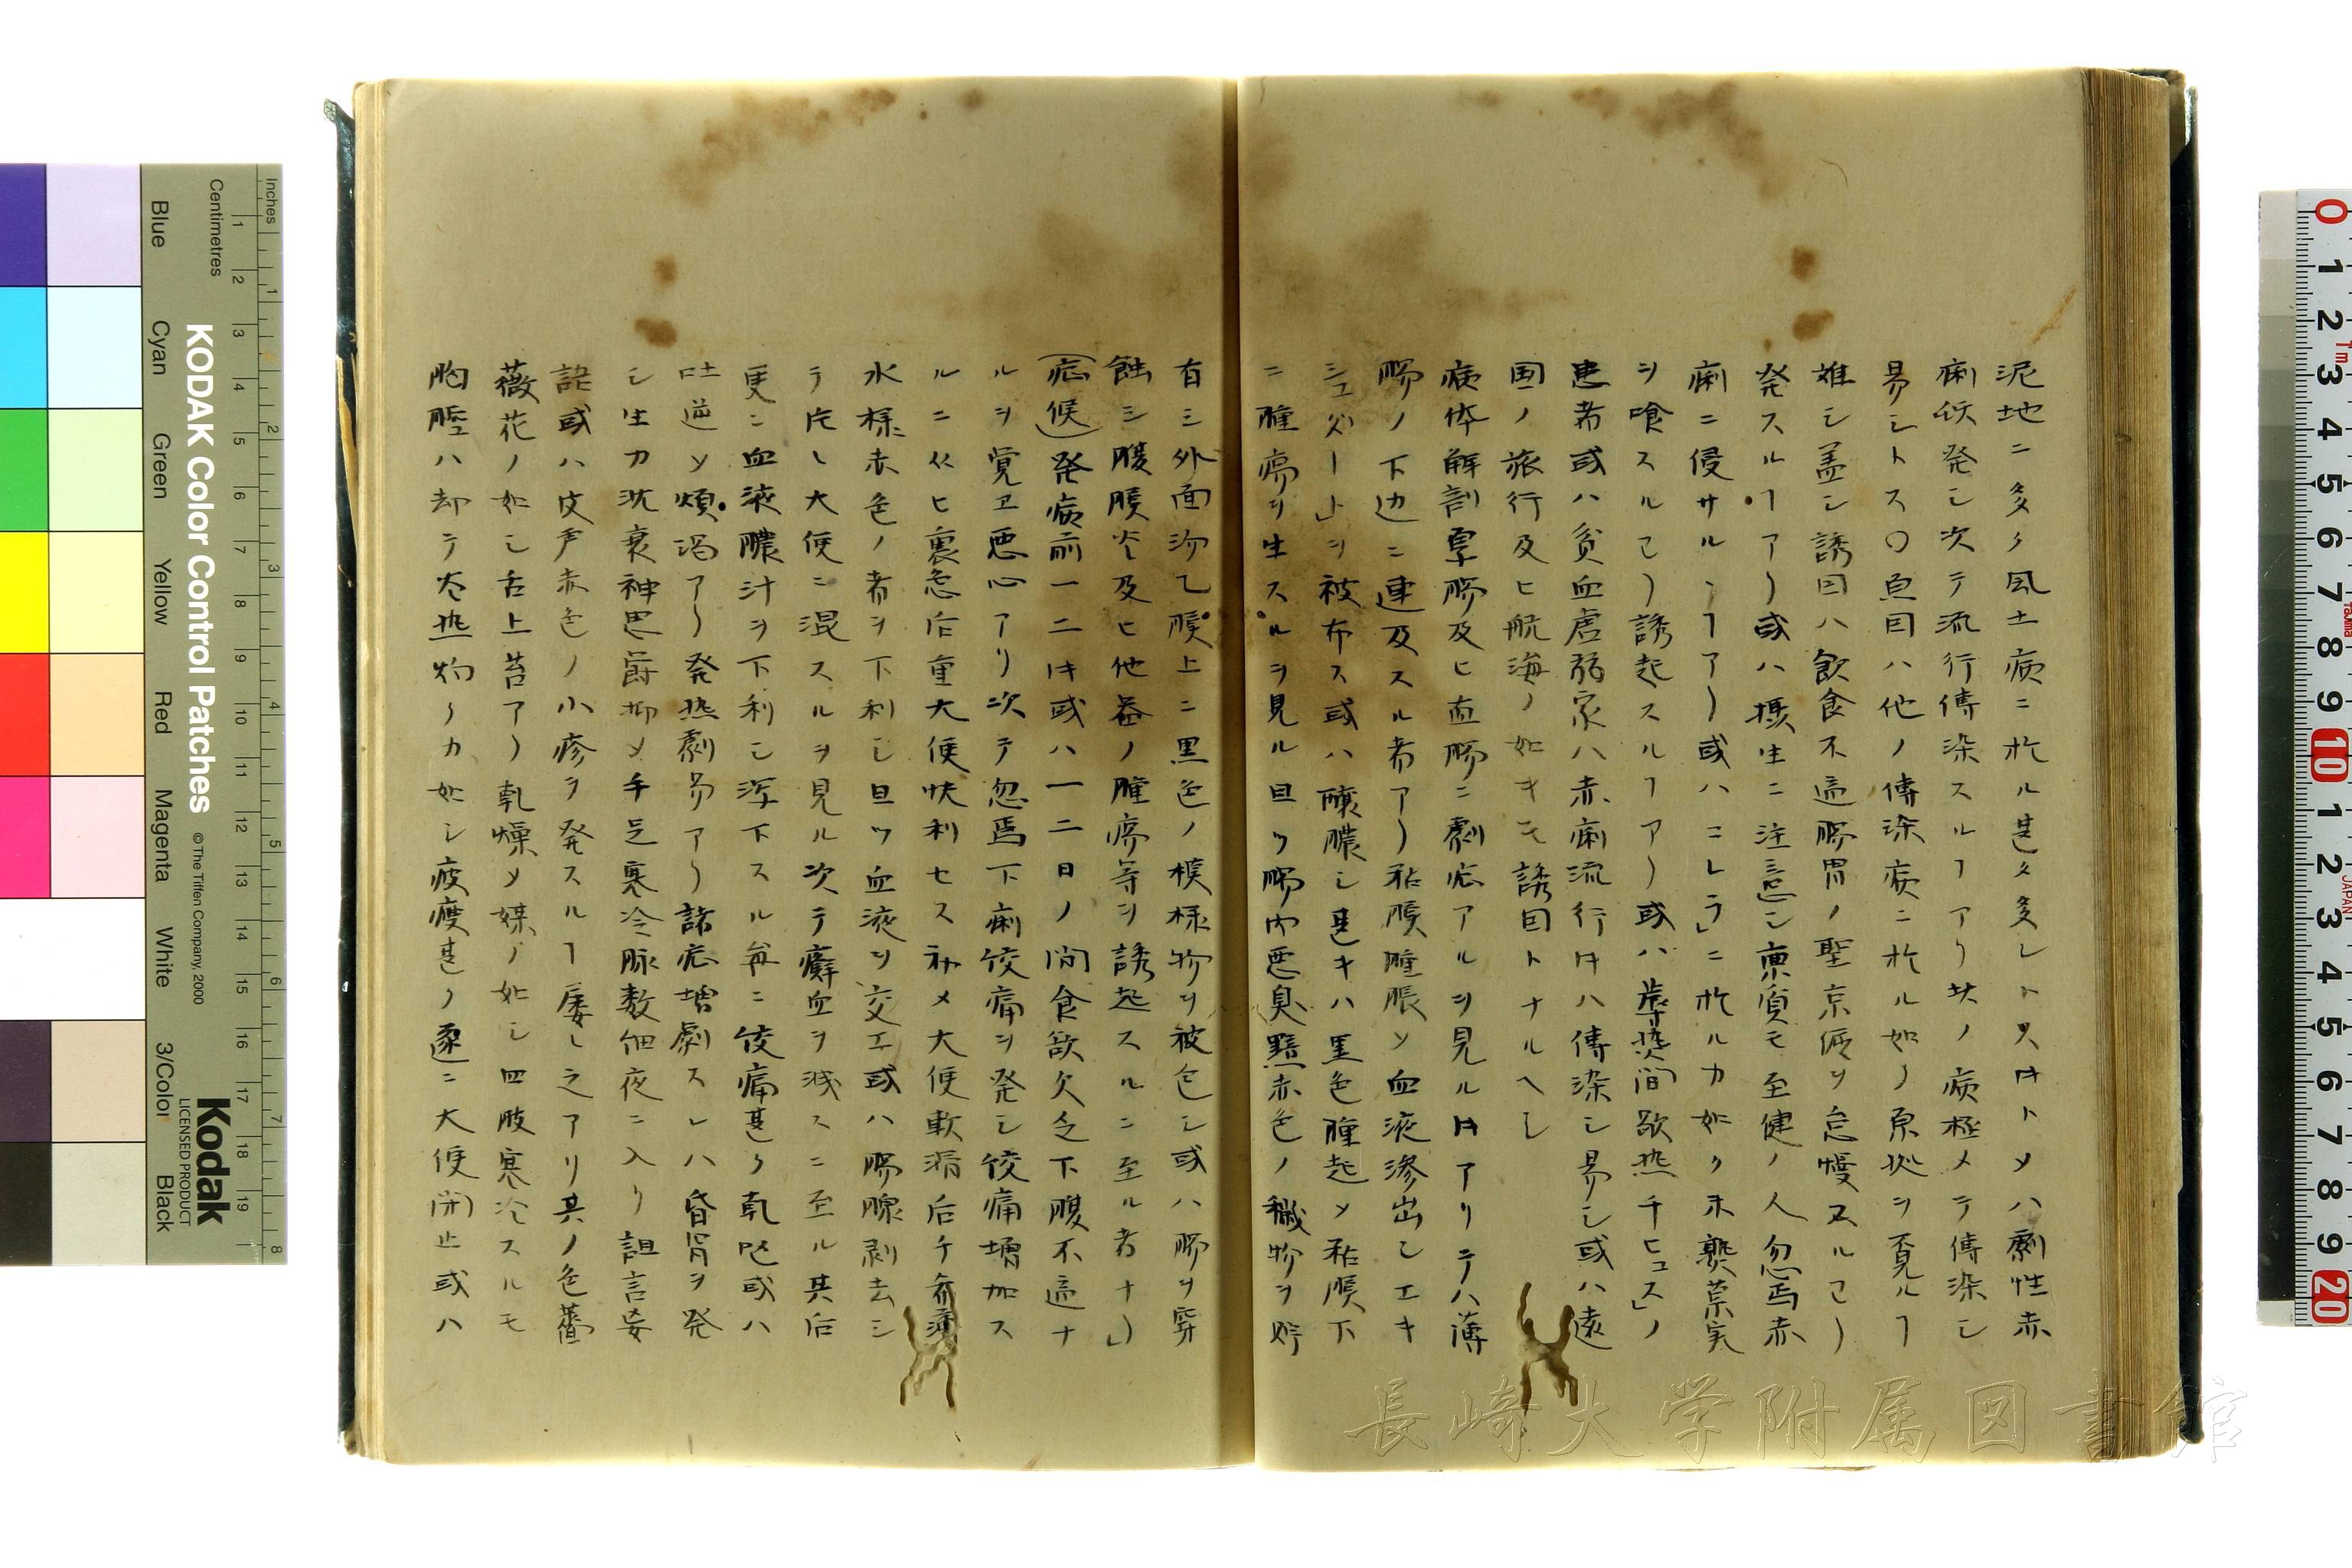 泥地ニ多ク風土病ニ於ル甚タ多シトス時トメハ劇性赤
痢状発シ次テ流行傳染スルヿアリ其ノ病極メテ傳染シ
易シトス〇原因ハ他ノ傳染病ニ於ル如ク原拠ヲ覓ルヿ
難シ盖シ誘因ハ飲食不適腸胃ノ聖京便ヲ怠慢スルヿ)
発スルヿアリ或ハ摂生ニ注意シ稟質モ至健ノ人忽焉赤
痢ニ侵サルヽヿアリ或ハコレラ」ニ於ルカ如ク未熟菓実
ヲ喰スルヿ)誘起スルヿアリ或ハ間歇熱チヒュス」ノ
患者或ハ貧血虚弱家ハ赤痢流行時ハ傳染シ易シ或ハ遠
国ノ旅行及ヒ航海ノ如キモ誘因トナルヘシ
病体解剖厚腸及ヒ直腸ニ劇症アルヲ見ル時アリテハ薄
腸ノ下辺ニ連及スル者アリ粘膜腫脹シ血液滲出シエキ
シュダート」ヲ被布ス或ハ醸膿シ甚キハ黒色腫起メ粘膜下
ニ腫瘍ヲ生スルヲ見ル且ツ腸内悪臭黯赤色ノ穢物ヲ貯
有シ外面泌乙膜上ニ黒色ノ模様物ヲ被包シ或ハ腸ヲ穿
蝕シ腹膜炎及ヒ他器ノ腫瘍等ヲ誘起スルニ至ル者ナリ」
(症候)発病前一二時或ハ一二日ノ間食欲欠乏下腹不適ナ
ルヲ覚ヱ悪心アリ次テ忽焉下痢疫痛ヲ発シ疫痛増加ス
ルニ従ヒ裏急后重大便快利セス初メ大便軟滑后チ希薄
水様赤色ノ者ヲ下利シ且ツ血液ヲ交エ或ハ腸腺剥去シ
テ片ヽ大便ニ混スルヲ見ル次テ癖血ヲ減スニ至ル其后
更ニ血液膿汁ヲ下利シ滓下スル毎ニ疫痛甚ク乾呕或ハ
吐逆シ煩渇アリ発熱劇昜アリ諸症増劇スレハ昏冒ヲ発
シ生力沈衰神思欝抑メ手足寒冷脉数細夜ニ入リ譫言妄
語或ハ皮膚赤色ノ小疹ヲ発スルヿ屡ヽ之アリ其ノ色薔
薇花ノ如シ舌上苔アリ乾燥メ煤ノ如シ四肢寒冷スルモ
胸腔ハ却テ大熱灼クカ如シ疲痩甚ク遂ニ大便閉止或ハ